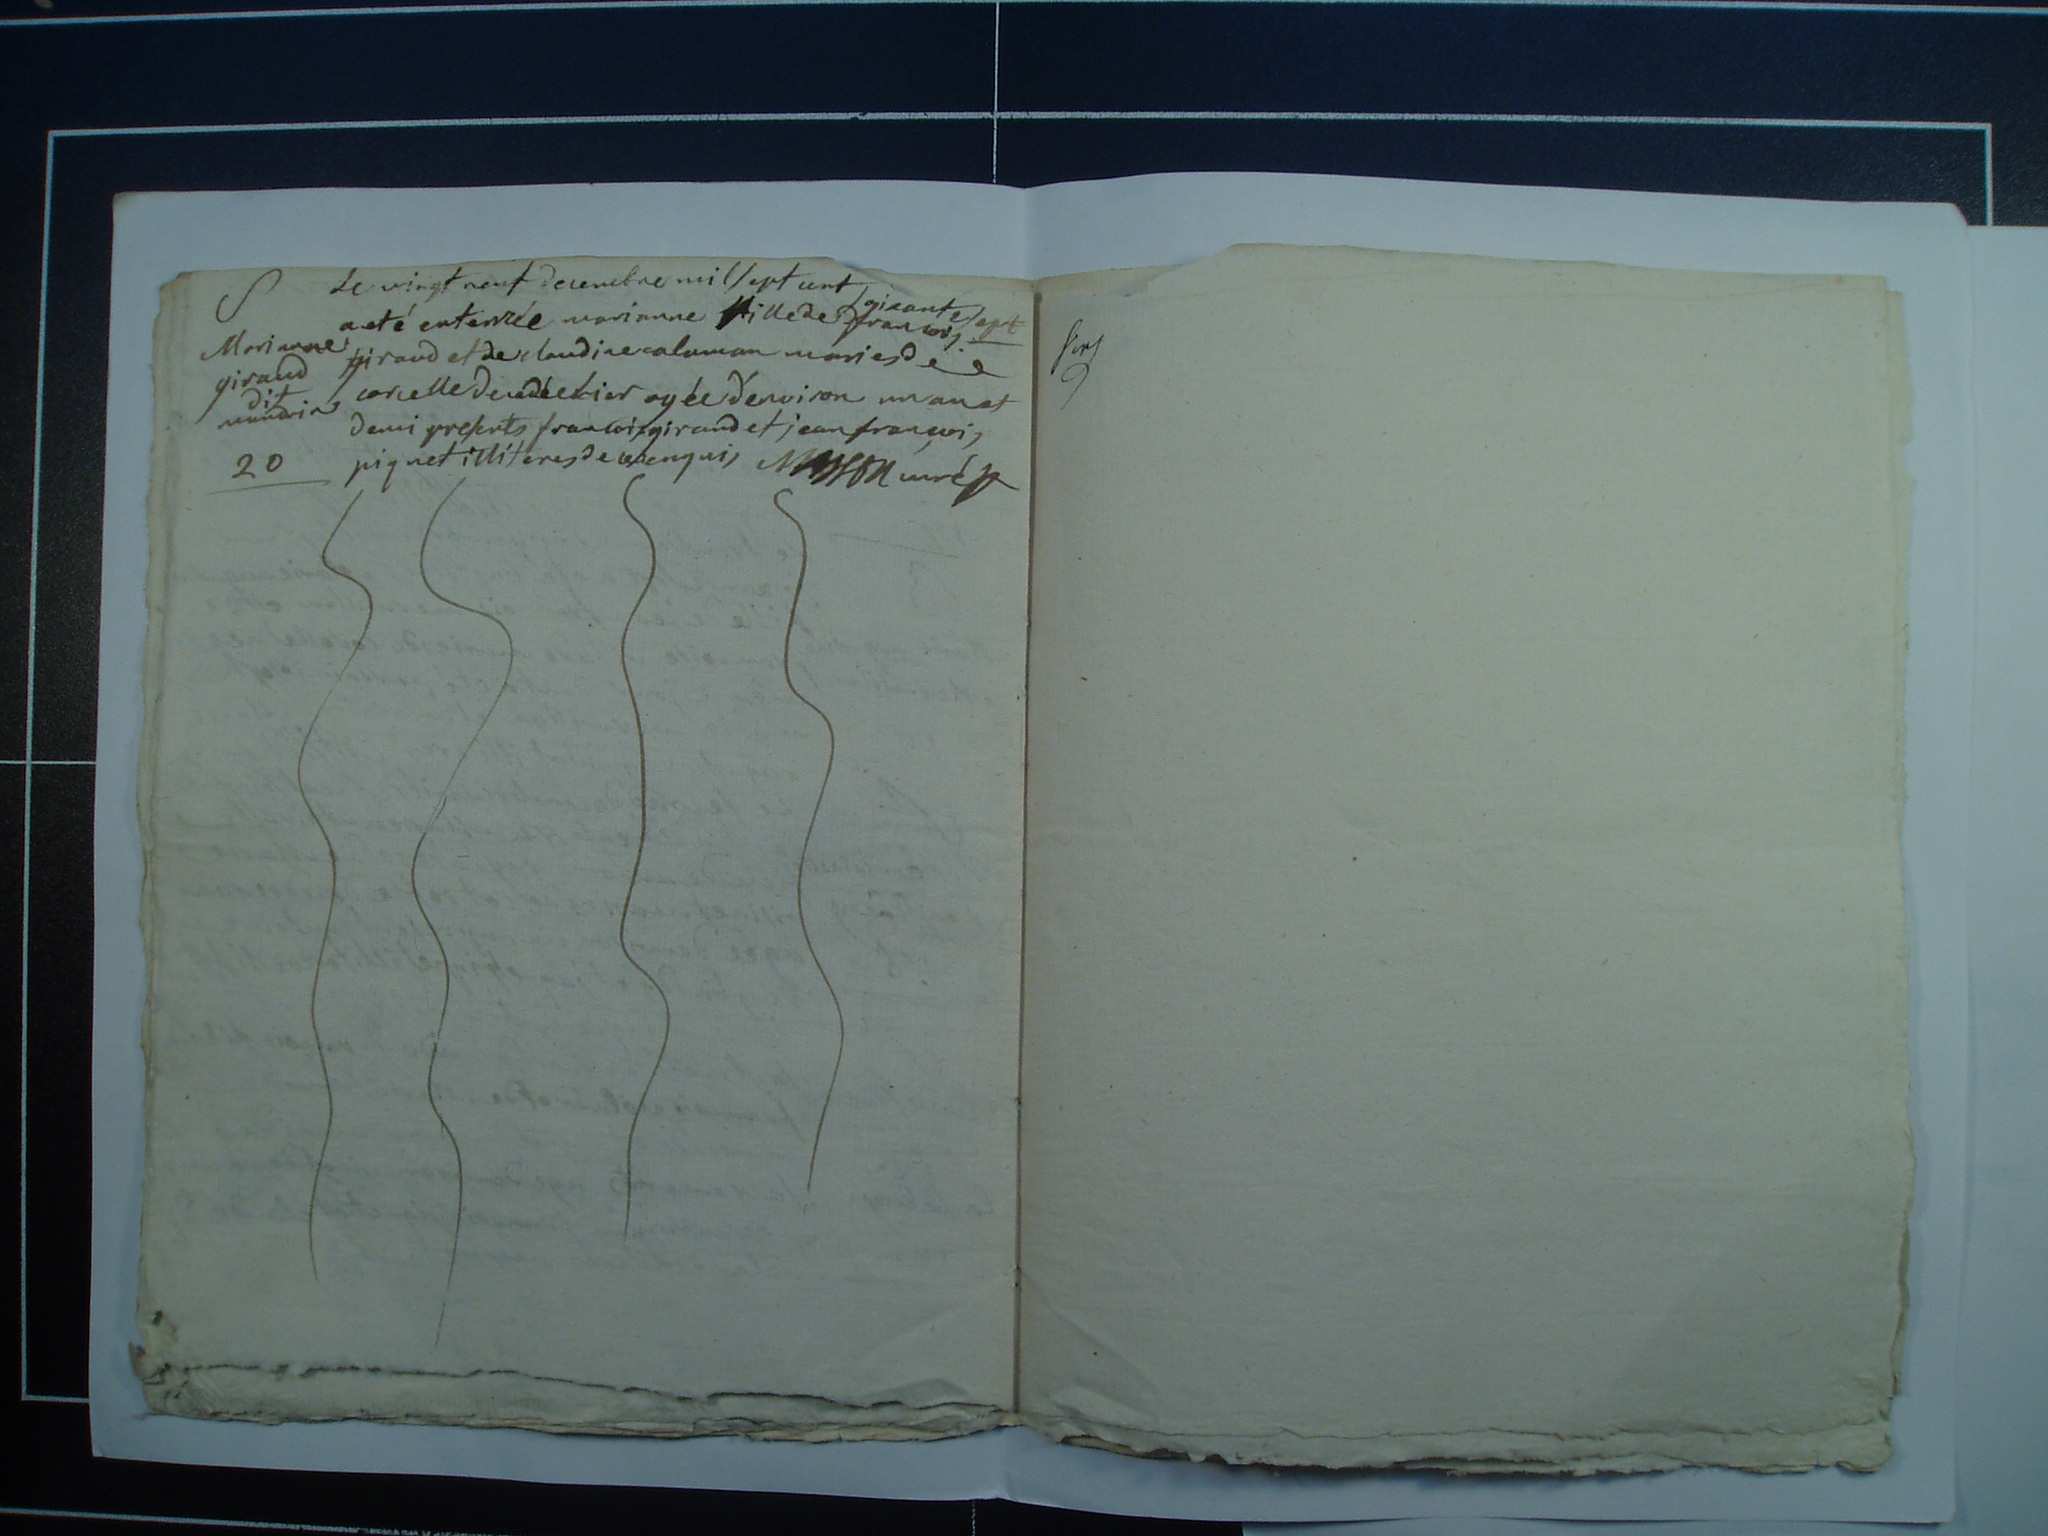 S
Marianne
giraud
dit
mandrin
20
Le vingt neuf decembre mil sept cent
soixante sept
a eté enterrée marianne fille de françois
giraud et de claudine calaman mariés de
corcelle decedée hier agée d'environ un an et
demi presents françois giraud et jean françois
piquet illiteres de ce enquis Masson curé